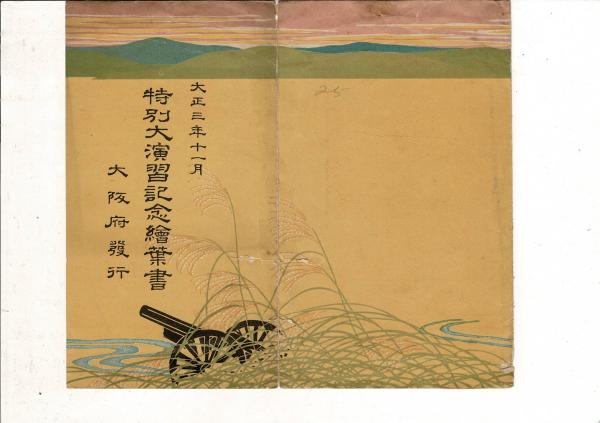 大正三年十一月
特別大演習記念繪葉書
大阪府發行
25